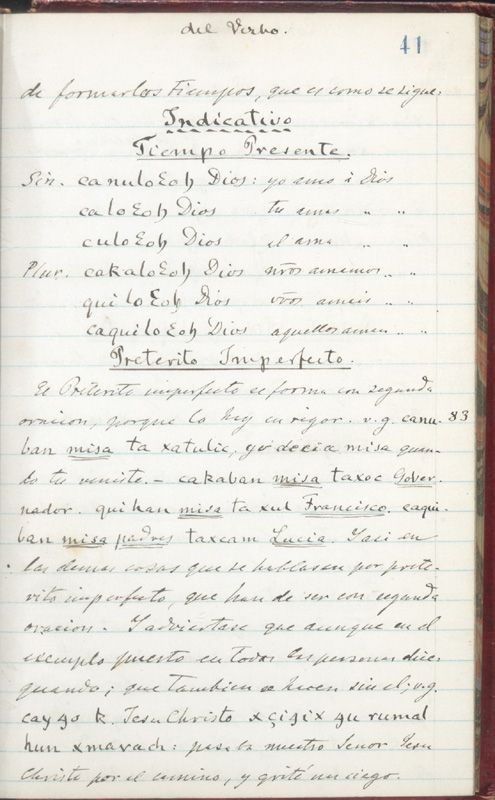 del Verbo.
41
de formar los Tiempos, que es como se sigue:
Indicativo
Tiempo Presente.
Sin. canuloEoh Dios: yo amo à Dios
caloEoh Dios tu amas „ „
culoEoh Dios el ama „ „
Plur. cakaloEoh Dios nros amamos „ „
quiloEoh Dios vros amais „ „
caquiloEoh Dios aquellos aman „ „
Preterito Imperfecto.
El Preterito imperfecto se forma con segunda
oracion, porque lo hay en rigor. v.g. canu- 83
ban misa ta xatulic, yo decia misa quan-
do tu veniste. – cakaban misa taxoc Gober-
nador. quihan misa ta xul Francisco. caqui-
ban misa padres taxcam Lucia. Iasi en
las demas cosas que se hablasen por prete-
rito imperfecto, que han de ser con segunda
oracion. Iadviertase que aunque en el
exemplo puesto en todas las personas dice
quando; que tambien se hacen sin el; v.g.
cay4o k. Jesu Christo xçi4ix 4u rumal
hun xmavach: pasaba nuestro Senor Jesu
Christo por el camino, y gritó un ciego.